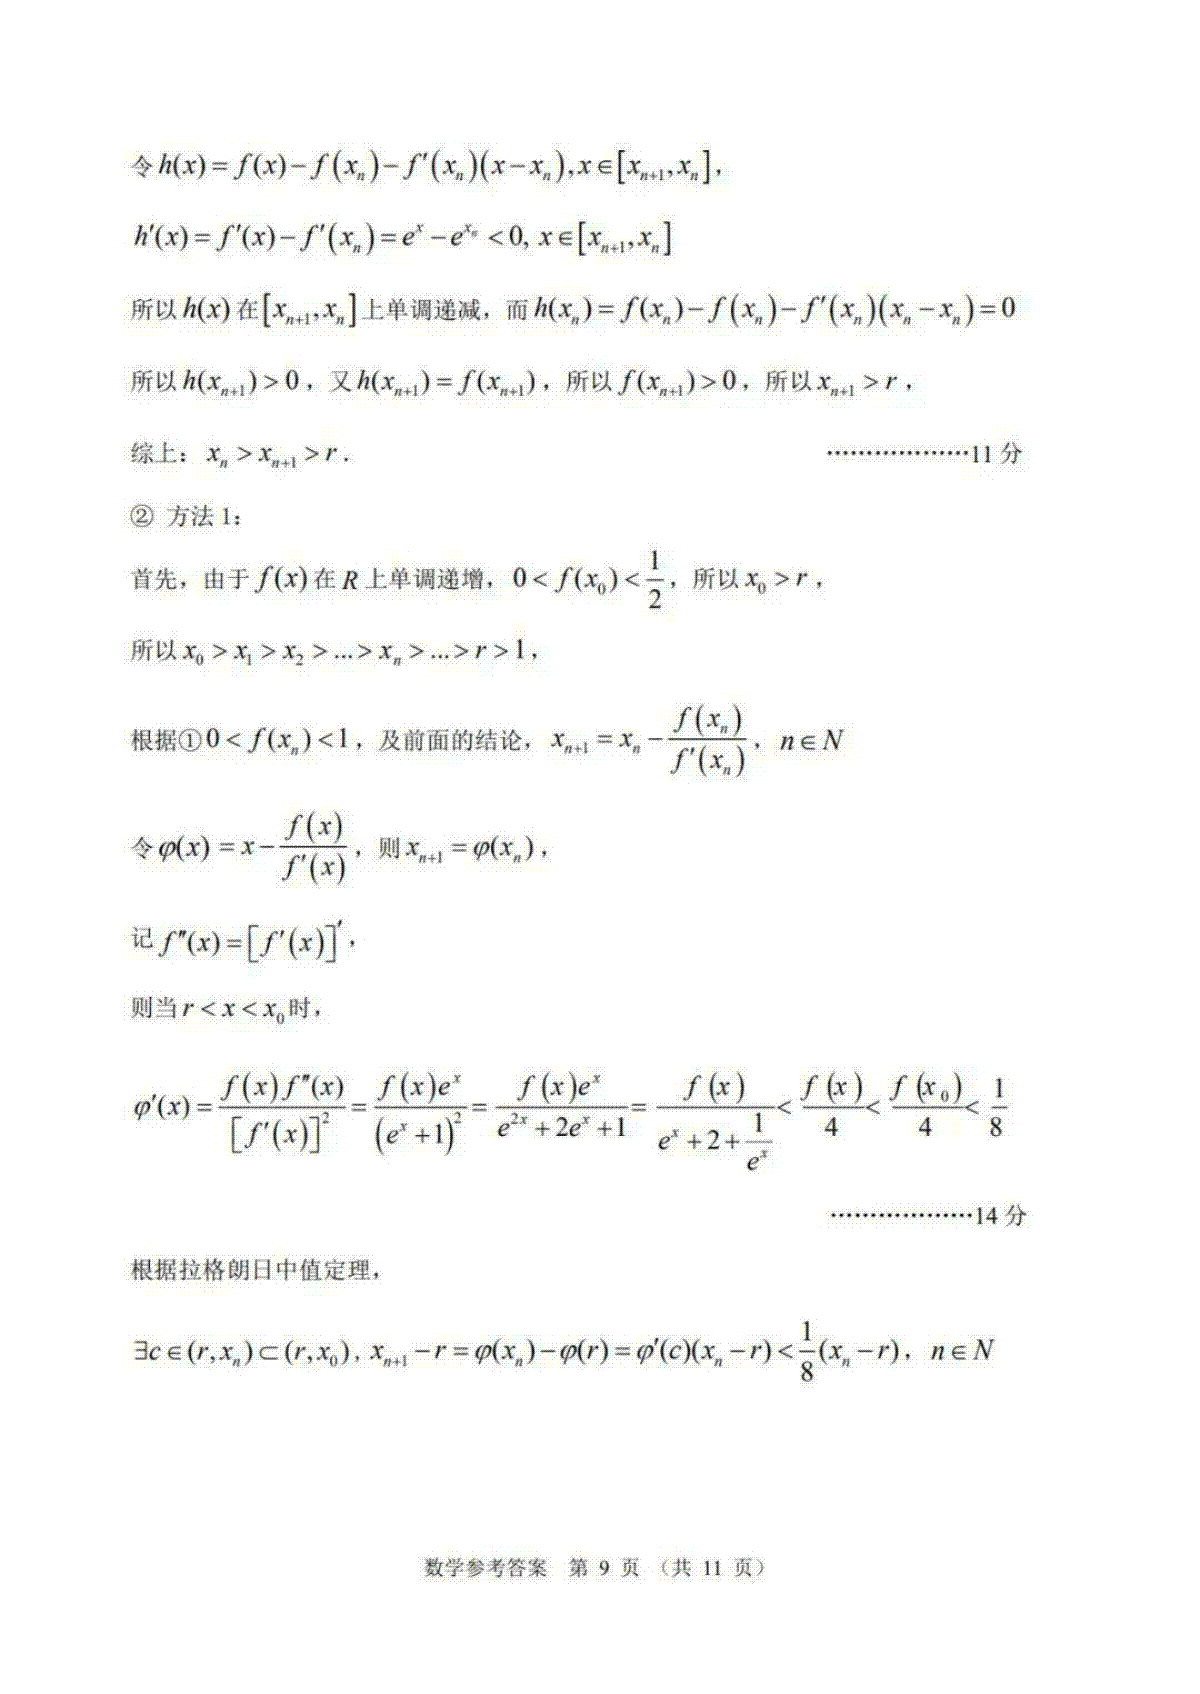 令 h(x) = f(x) − f(xₙ) − f′(xₙ)(x − xₙ), x ∈ [xₙ₊₁, xₙ],
h′(x) = f′(x) − f′(xₙ) = eˣ − e^{xₙ} < 0, x ∈ [xₙ₊₁, xₙ]
所以 h(x) 在 [xₙ₊₁, xₙ] 上单调递减，而 h(xₙ) = f(xₙ) − f(xₙ) − f′(xₙ)(xₙ − xₙ) = 0
所以 h(xₙ₊₁) > 0，又 h(xₙ₊₁) = f(xₙ₊₁)，所以 f(xₙ₊₁) > 0，所以 xₙ₊₁ > r，
综上：xₙ > xₙ₊₁ > r． ··················11 分
② 方法 1：
首先，由于 f(x) 在 R 上单调递增，0 < f(x₀) < 1/2，所以 x₀ > r，
所以 x₀ > x₁ > x₂ > ... > xₙ > ... > r > 1，
根据① 0 < f(xₙ) < 1，及前面的结论，xₙ₊₁ = xₙ − f(xₙ)/f′(xₙ)，n ∈ N
令 φ(x) = x − f(x)/f′(x)，则 xₙ₊₁ = φ(xₙ)，
记 f″(x) = [f′(x)]′，
则当 r < x < x₀ 时，
φ′(x) = f(x)f″(x)/[f′(x)]² = f(x)eˣ/(eˣ + 1)² = f(x)eˣ/(e²ˣ + 2eˣ + 1) = f(x)/(eˣ + 2 + 1/eˣ) < f(x)/4 < f(x₀)/4 < 1/8
··················14 分
根据拉格朗日中值定理，
∃c ∈ (r, xₙ) ⊂ (r, x₀)，xₙ₊₁ − r = φ(xₙ) − φ(r) = φ′(c)(xₙ − r) < 1/8(xₙ − r)，n ∈ N
数学参考答案 第 9 页 （共 11 页）